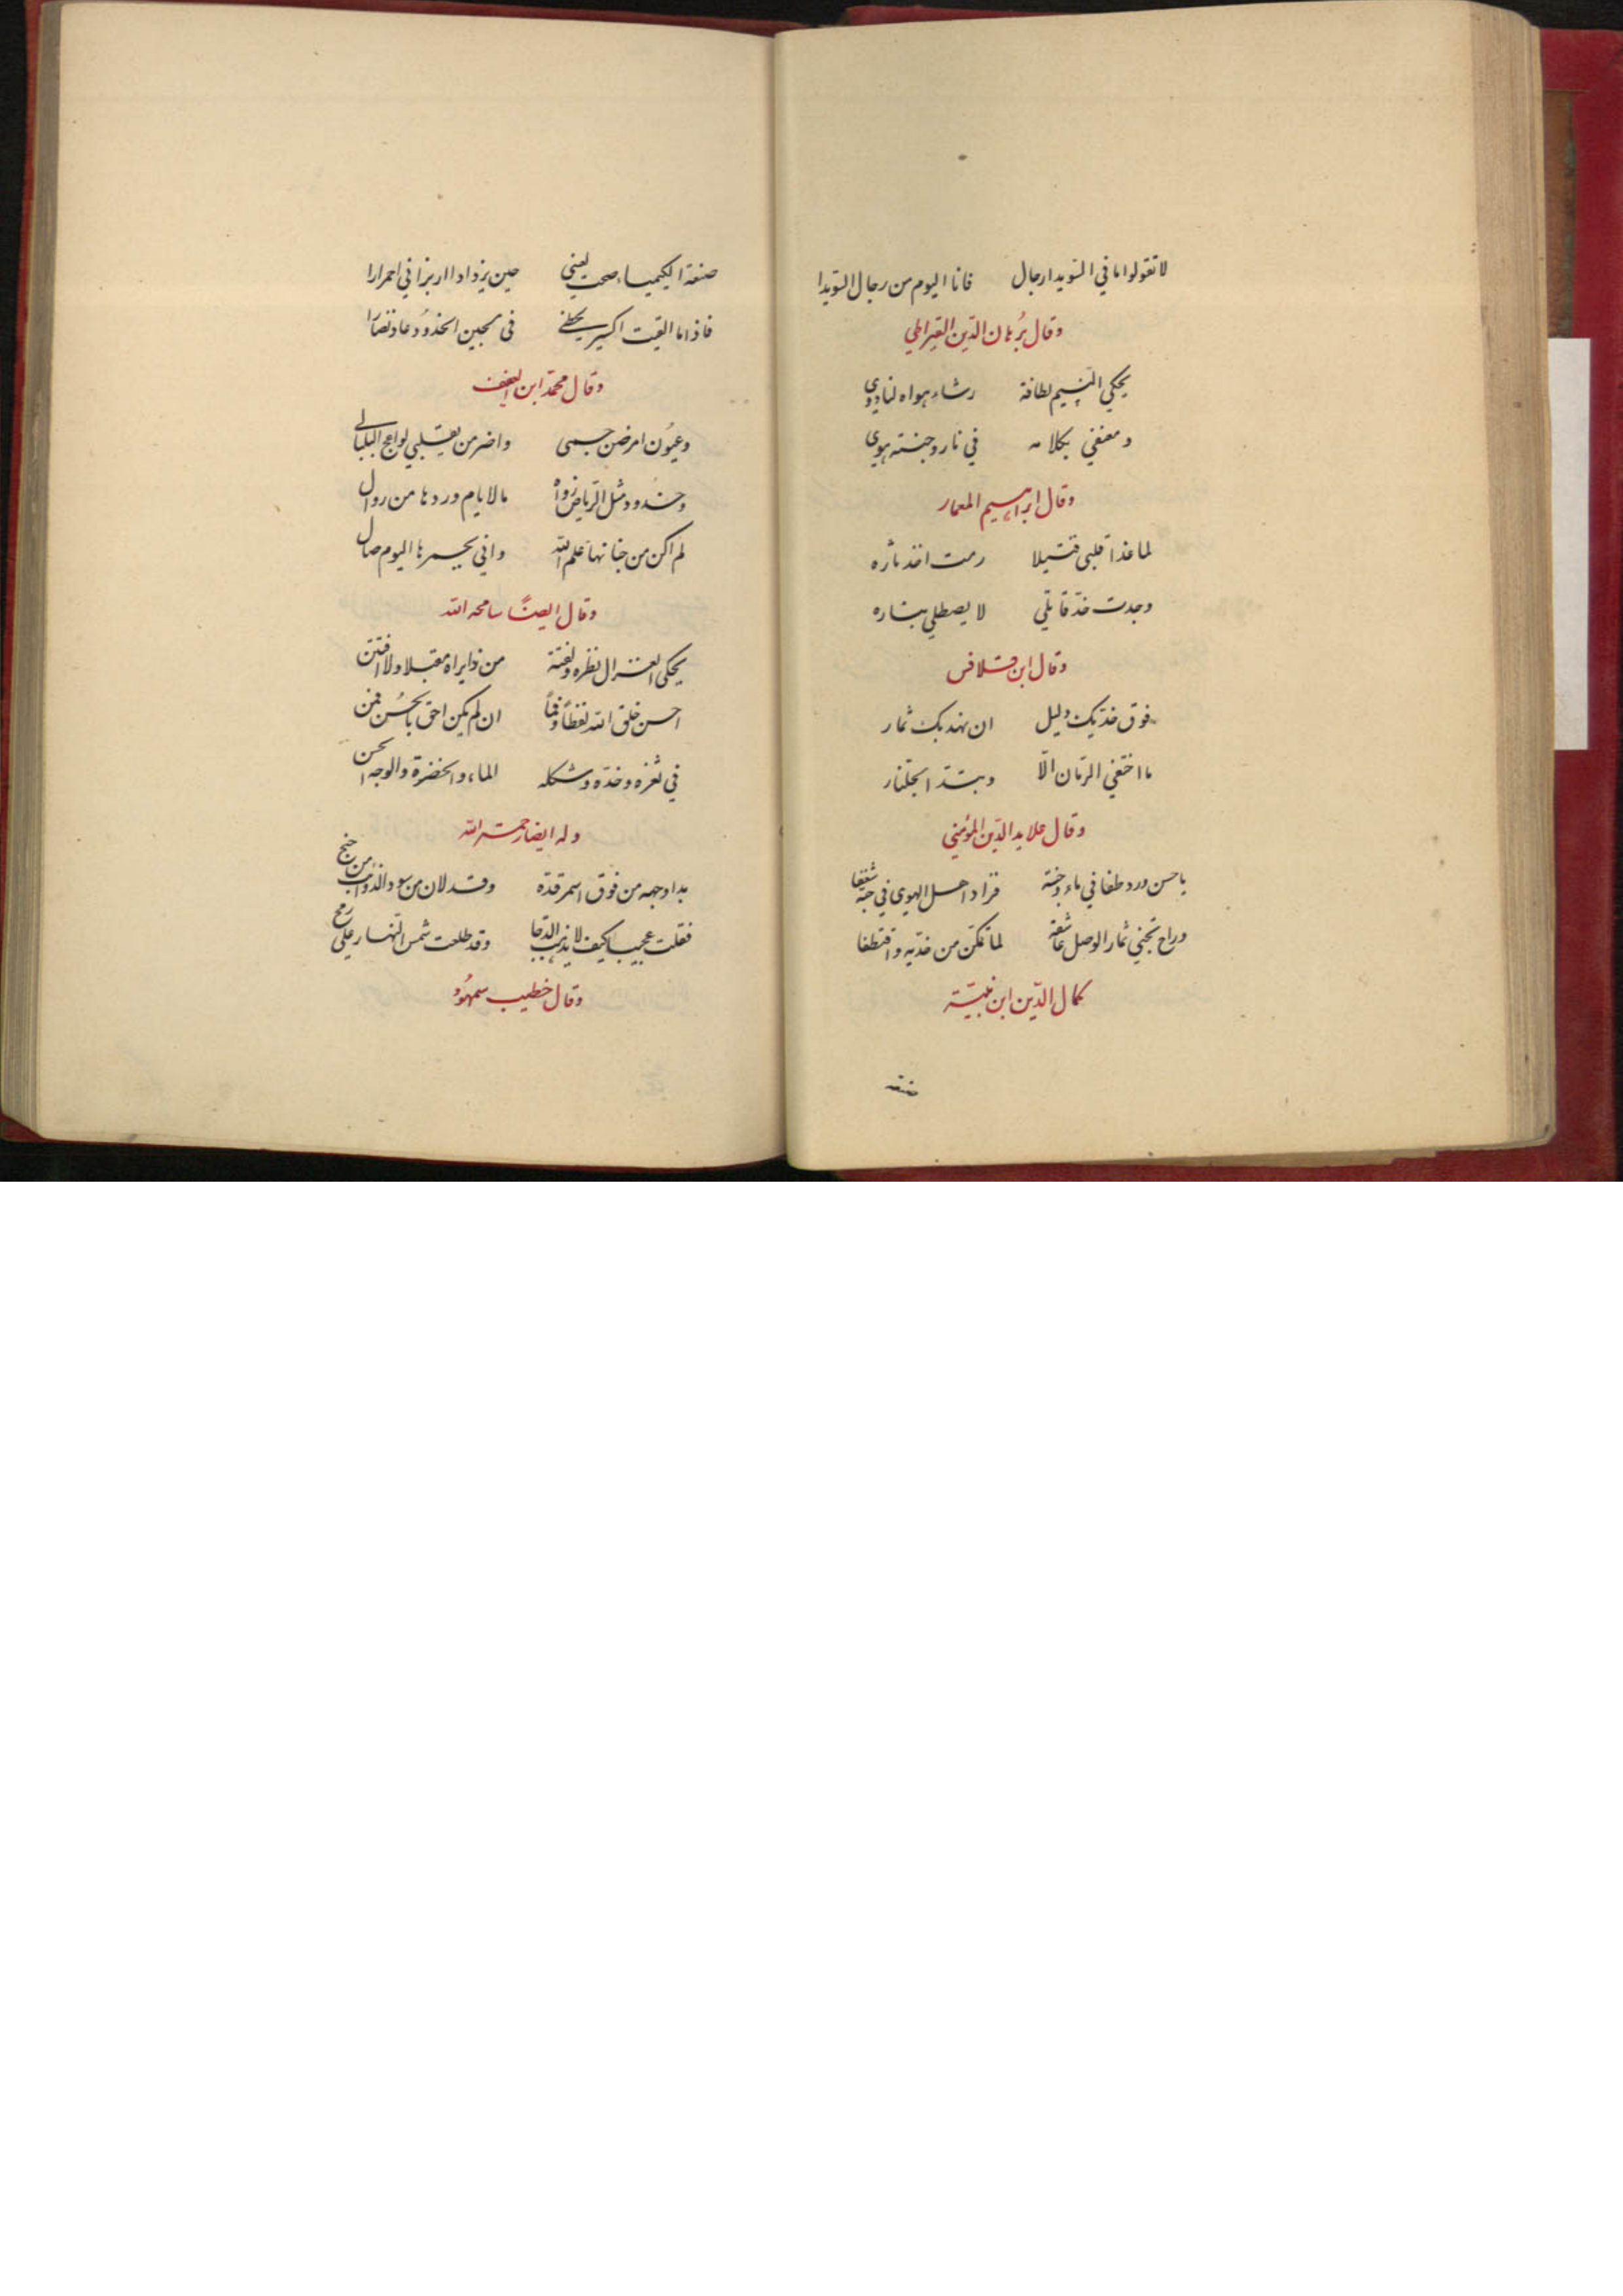 لا تقولوا ما في السويدا رجال فانا اليوم من رجال السويدا
وقال برُهان الدّين القيراطي
يحكي النسيم لطافة رشاء هواه لنا دوي
ومعنفي بكلامه في نار وجنته هوي
وقال ابراهيم المعمار
لما غذا قلبي قتيلا رمت اخذ ثاره
وجدت خدّ قاتلي لا يصطلي بناره
وقال ابن قلاقس
فوق خدّيك دليل ان نهديك ثمار
ما اختفي الرمّان الّا وبتدّا الجلنار
وقال علايد الدّين المؤمني
يا حسن ورد طفا في ماء وجنته فزاد اهل الهوي في حبّه شغفا
وراح تجني ثمار الوصل عاشقه لما تمكّن من خدّيه واقتطفا
كمال الدّين ابن نبيّة
صنعة الكيمياء صحت لعيني حين يزداد ااربزا في احمرارا
فاذا ما القيت اكسير لحظي في لجين الخدوُد عاد نضارا
وقال محمّد ابن العفيف
وعيوُن امرضن جسمى واضرمن بقلبي لواعج البلبالى
وخدود مثل الرّياض زواه ما لايام وردها من زوال
لم اكن من جناتها علم الله واني بجمرها اليوم صال
وقال ايضًا سامحه الله
يحكى الغزال نظره ولفتة من ذا يراه مقبلا ولا افتتن
احسن خلق الله لفظاً وفمًا ان لم يكن احق بالحُسن فمن
في ثغره وخدّه وشكله الماء والخضرة والوجه الحسن
وله ايضا رحمته الله
بدا وجهه من فوق اسمر قدّه وقد لان من سود الذوائب من جنح
فقلت عجيبا كيف لا يذهب الدّجا وقد طلعت شمس النّهار على رمح
وقال خطيب سمهوُد